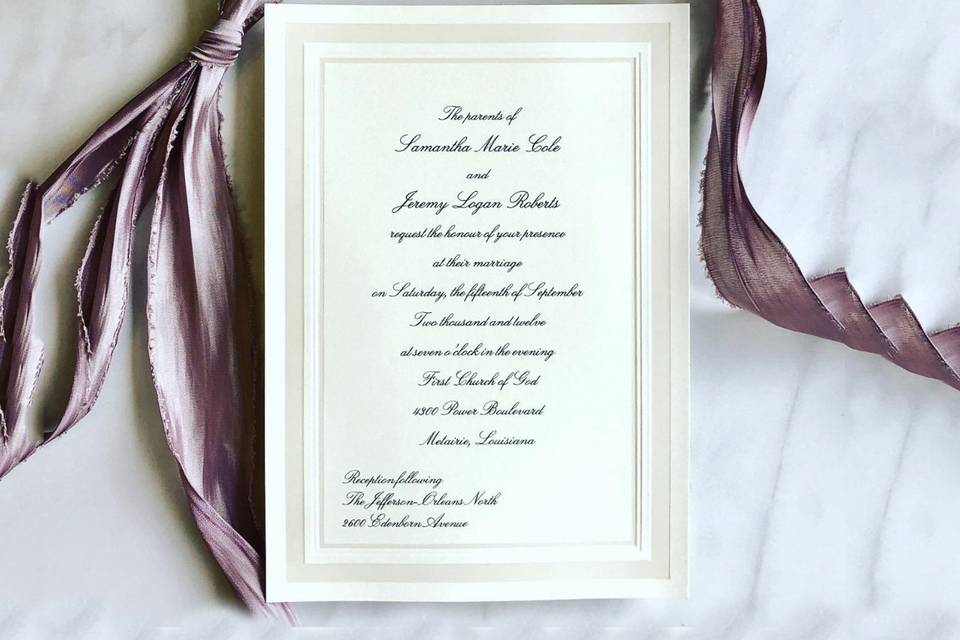 The parents of
Samantha Marie Cole
and
Jeremy Logan Roberts
request the honour of your presence
at their marriage
on Saturday, the fifteenth of September
Two thousand and twelve
at seven o'clock in the evening
First Church of God
4300 Power Boulevard
Metairie, Louisiana
Reception following
The Jefferson-Orleans North
2600 Edenborn Avenue